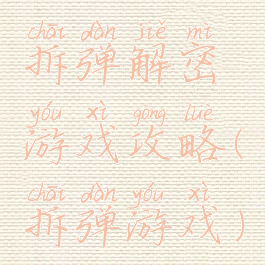 chāi dàn jiě mì
拆弹解密
yóu xì gōng lüè
游戏攻略(
chāi dàn yóu xì
拆弹游戏)